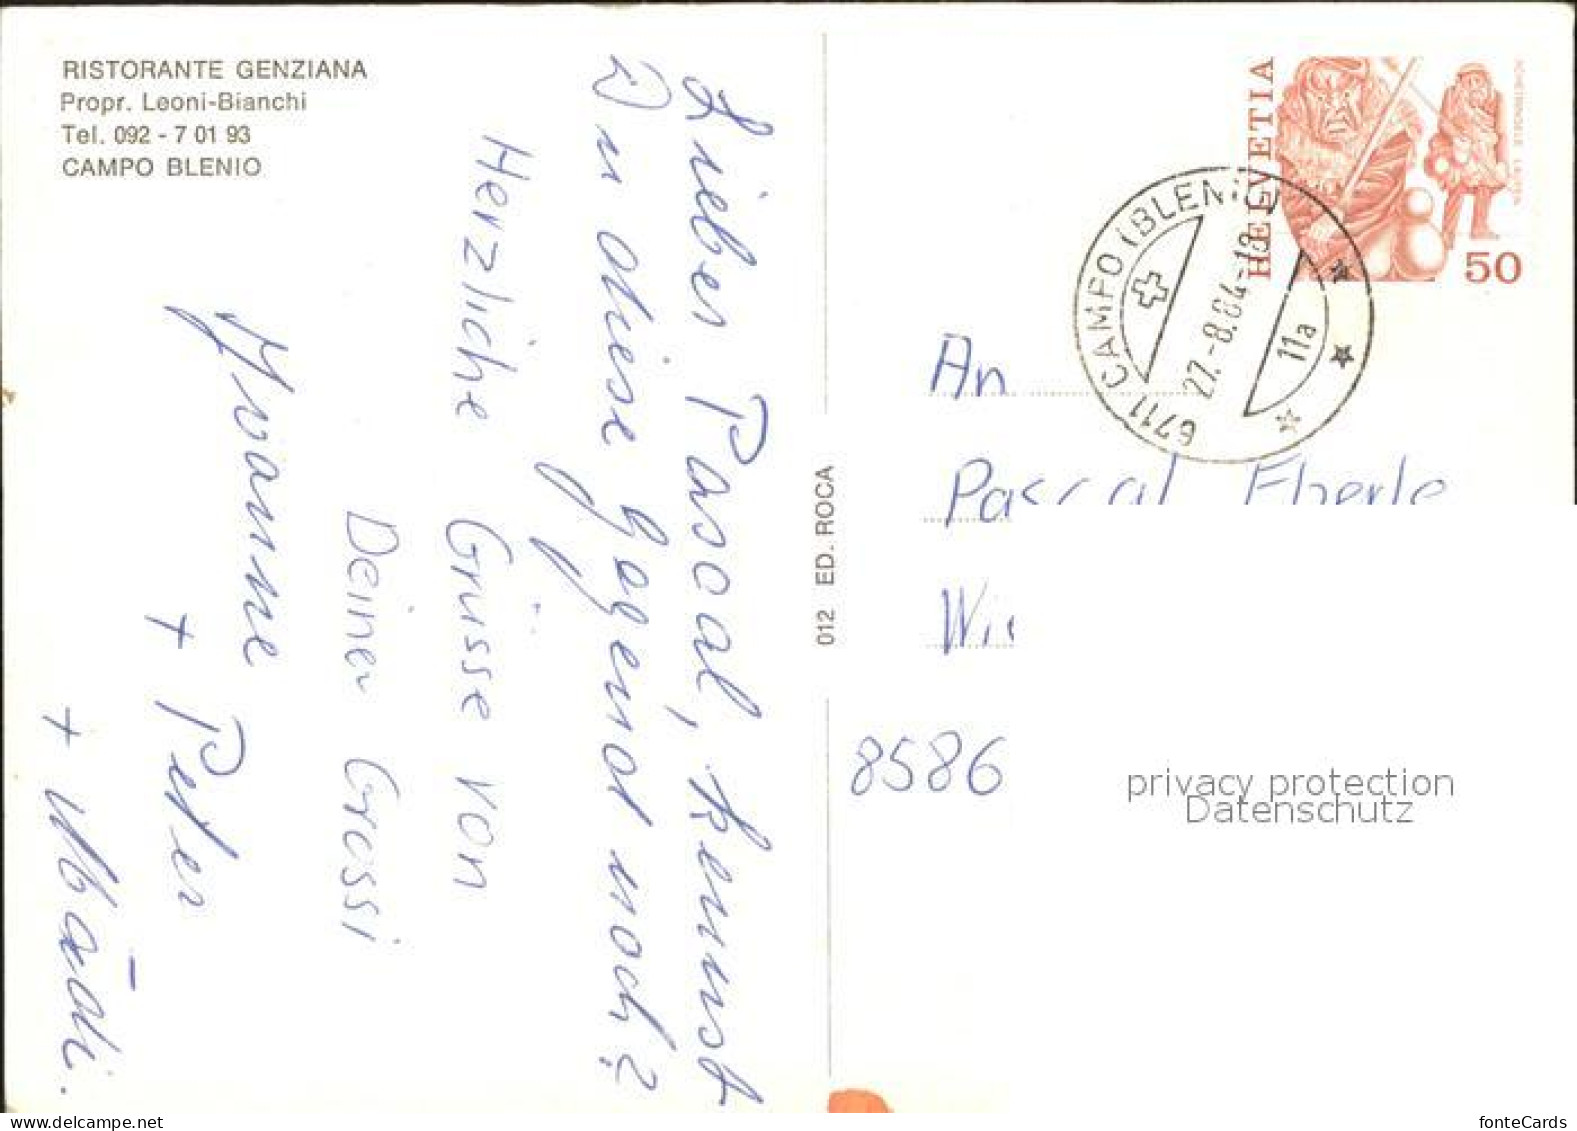 RISTORANTE GENZIANA
Propr. Leoni-Bianchi
Tel. 092 - 7 01 93
CAMPO BLENIO
Lieber Pascal, kennst
Du diese Gegend noch?
Herzliche Grüsse von
Deinen Grossi
Yvonne
+ Peter
+ Mädi.
012 ED. ROCA
HELVETIA
50
6711 CAMPO (BLENIO)
27.-8.84-18
11a
An
Pascal Eberle
8586
privacy protection
Datenschutz
fonteCards